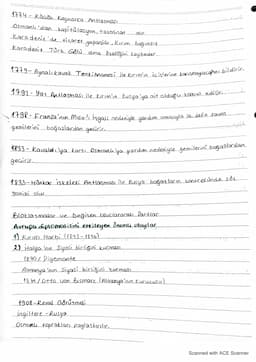 1774 - Küçük Kaynarca Antlaşması
Osmanlı'dan kapitülasyon, tazminat
Karadeniz'de ticaret yapabilir, Kırım bağımsız
Karadeniz Türk Gölü olma özelliğini kaybeder.
1779 - Aynalıkavak Tenkihnamesi ile Kırım'ın içişlerine karışmayacağını bildirir.
1792 - Yaş Antlaşması ile Kırım'ın Rusya'ya ait olduğu kabul edilir.
1798 - Fransa'nın Mısır'ı işgali nedeniyle yardım amacıyla ilk defa savaş
gemilerini boğazlardan geçirir.
1833 - Kavalalı'ya karşı Osmanlı'ya yardım nedeniyle gemilerini boğazlardan
geçirir.
1833 - Hünkar İskelesi Antlaşması ile Rusya boğazların üzerinde söz
sahibi olur.
Bloklaşmalar ve Değişen Uluslararası Şartlar
Avrupa diplomasisini etkileyen önemli olaylar
1) Kırım Harbi (1853-1856)
2) İtalya'nın Siyasi birliğini kurması
1870/ Piyemonte
Almanya'nın Siyasi birliğini kurması
1871/ Otto von Bismarc (Almanya'nın kurucusu)
1908 - Reval Görüşmesi
İngiltere - Rusya
Osmanlı toprakları paylaştırılır.
Scanned with ACE Scanner